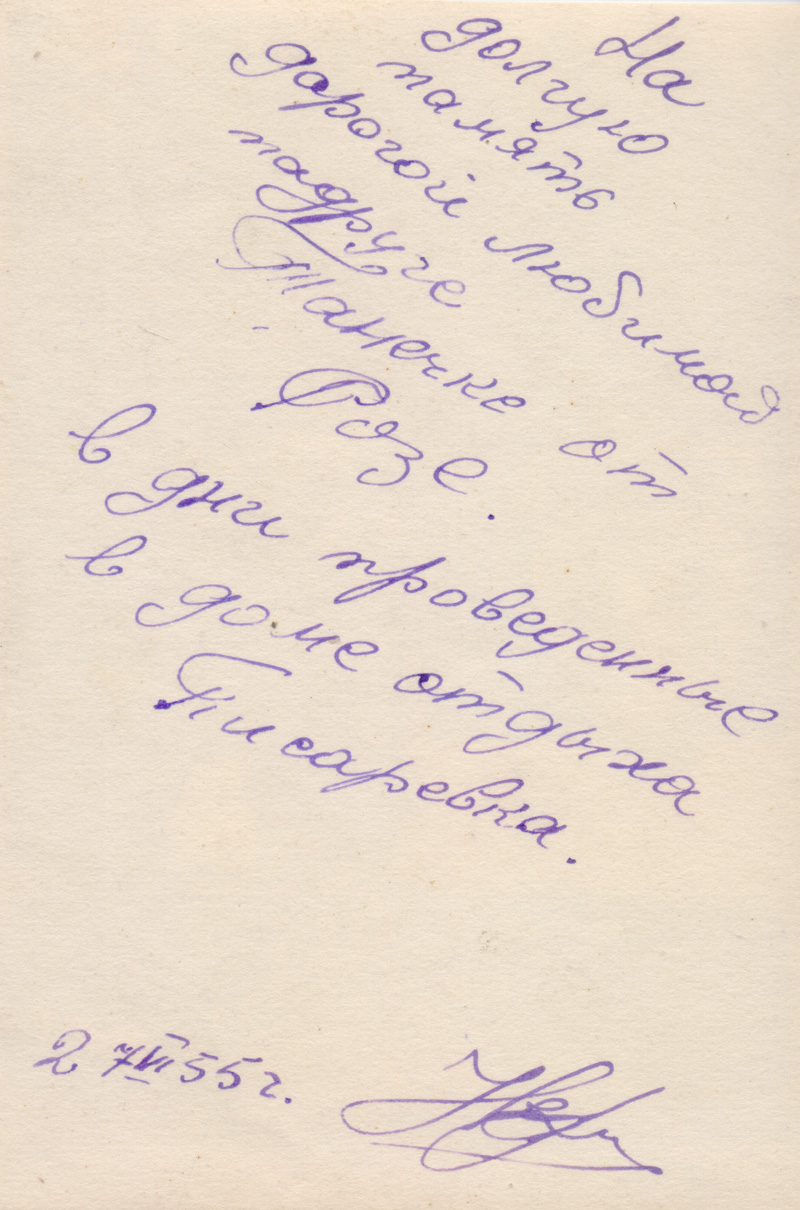 На
долгую
память
дорогой любимой
падруге
Танечке от
Розе.
в дни проведенные
в доме отдыха
Писаревка.
27 VI 55 г.